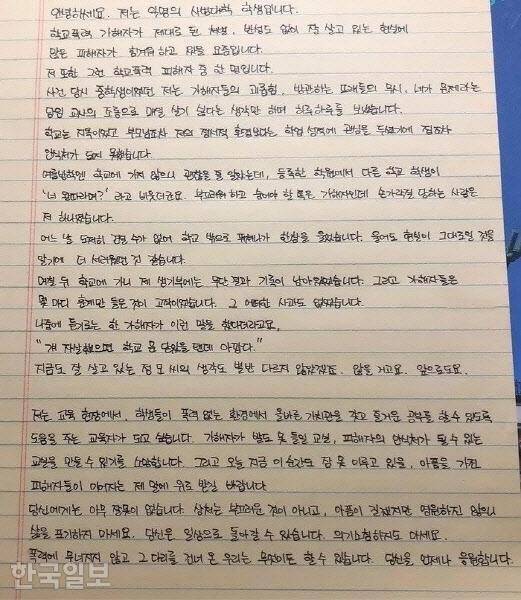 안녕하세요. 저는 익명의 사범대학 학생입니다.
학교폭력 가해자가 제대로 된 처벌, 반성도 없이 잘 살고 있는 현실에
많은 피해자가 힘겨워 하고 있을 요즘입니다.
저 또한 그런 학교폭력 피해자 중 한 명입니다.
사건 당시 중학생이었던 저는 가해자들의 괴롭힘, 방관하는 또래들의 무시, 네가 문제라는
담임 교사의 조롱으로 매일 살기 싫다는 생각만 하며 하루하루를 보냈습니다.
학교는 지옥이었고 부모님조차 저의 정서적 혼란보다는 학업 성적에 관심을 두셨기에 집조차
안식처가 되지 못했습니다.
여름방학엔 학교에 가지 않으니 괜찮을 줄 알았는데, 등록한 학원에서 다른 학교 학생이
'너 왕따라며?' 라고 비웃더라고요. 부끄러워하고 숨어야 할 쪽은 가해자인데 손가락질 당하는 사람은
저 하나였습니다.
어느 날 도저히 견딜 수가 없어 학교 밖으로 뛰쳐나가 한참을 울었습니다. 울어도 현실이 그대로일 것을
알기에 더 서러웠던 것 같습니다.
며칠 뒤 학교에 가니 제 생기부에는 무단결과 기록이 남아있었습니다. 그리고 가해자들은
몇 마디 훈계만 들은 것이 고작이었습니다. 그 어떠한 사과도 없었습니다.
나중에 듣기로는 한 가해자가 이런 말을 했다더라고요.
"걔 자살했으면 학교 몇 달 쉬는 텐데 아깝다."
지금도 잘 살고 있는 정 모 씨의 생각도 별반 다르지 않았겠죠. 않을 거고요. 앞으로도요.
저는 교육 현장에서, 학생들이 폭력 없는 환경에서 올바른 가치관을 갖고 즐거운 공부를 할 수 있도록
도움을 주는 교육자가 되고 싶습니다. 가해자가 발도 못 들일 교실, 피해자의 안식처가 될 수 있는
교실을 만들 수 있기를 소망합니다. 그리고 오늘 지금 이 순간도 잠 못 이루고 있을, 아픔을 가진
피해자들이 이어지는 제 말에 위로 받길 바랍니다.
당신에게는 아무 잘못이 없습니다. 상처는 부끄러운 것이 아니고, 아픔이 길겠지만 영원하진 않으니
삶을 포기하지 마세요. 당신은 일상으로 돌아갈 수 있습니다. 의기소침하지도 마세요.
폭력에 무너지지 않고 그 다리를 건너 온 우리는 무엇이든 할 수 있습니다. 당신을 언제나 응원합니다.
한국일보